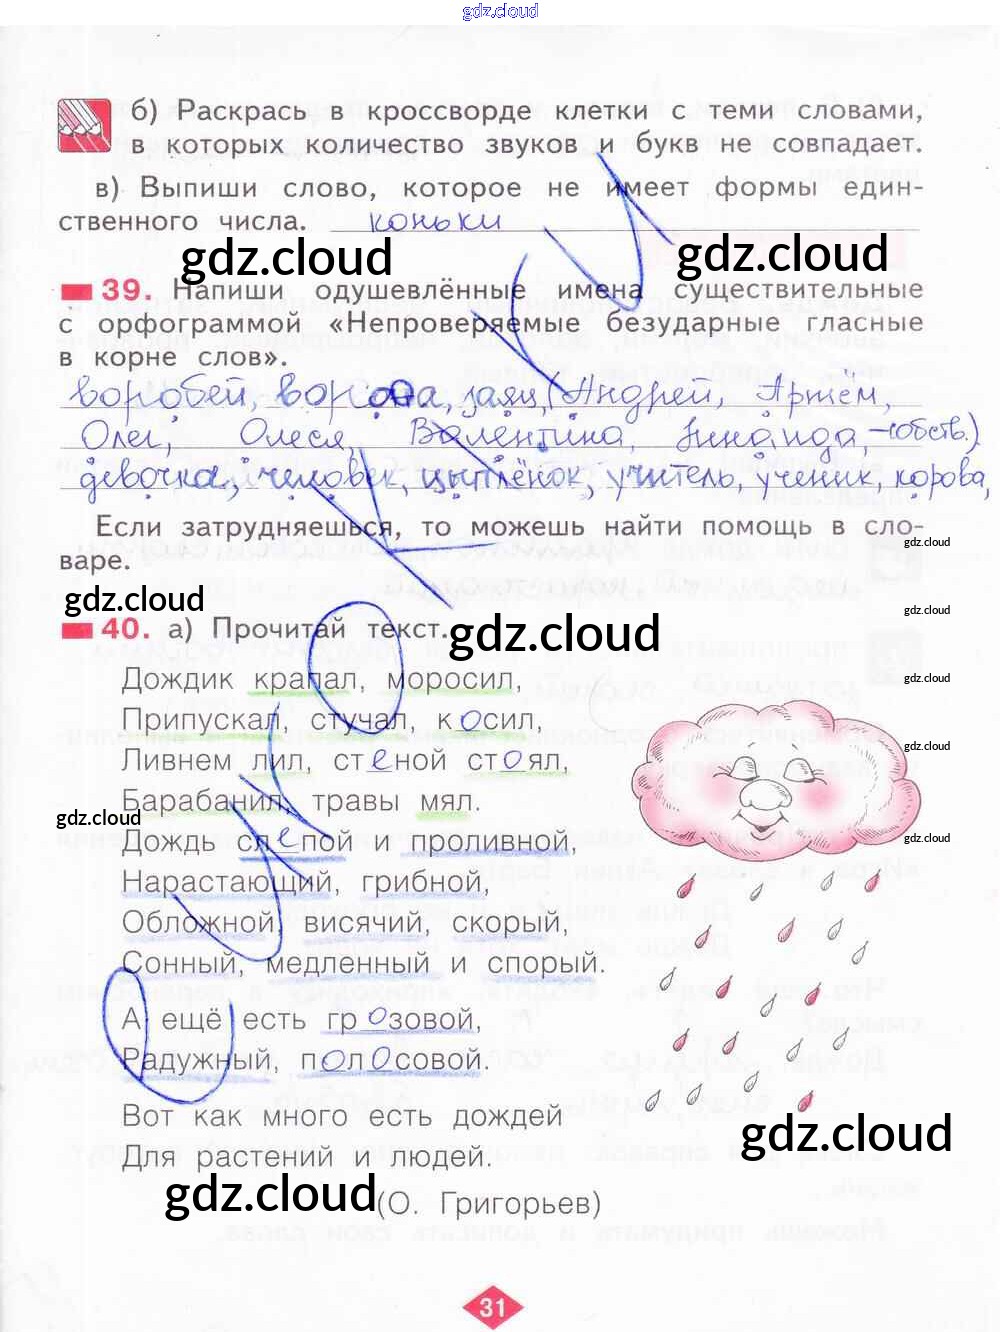 gdz.cloud
б) Раскрась в кроссворде клетки с теми словами,
в которых количество звуков и букв не совпадает.
в) Выпиши слово, которое не имеет формы един-
ственного числа. коньки
gdz.cloud
gdz.cloud
39. Напиши одушевлённые имена существительные
с орфограммой «Непроверяемые безударные гласные
в корне слов».
воробей, ворона, заяц, (Андрей, Артём,
Олег, Олеся, Валентина, Зинаида,-собств.)
девочка, человек, цыплёнок, учитель, ученик, корова,
Если затрудняешься, то можешь найти помощь в сло-
варе.
gdz.cloud
gdz.cloud
gdz.cloud
gdz.cloud
40. а) Прочитай текст.
gdz.cloud
Дождик крапал, моросил,
Припускал, стучал, косил,
Ливнем лил, стеной стоял,
gdz.cloud
Барабанил, травы мял.
gdz.cloud
Дождь слепой и проливной,
gdz.cloud
Нарастающий, грибной,
Обложной, висячий, скорый,
Сонный, медленный и спорый.
А ещё есть грозовой,
Радужный, полосовой.
Вот как много есть дождей
Для растений и людей.
gdz.cloud
gdz.cloud
(О. Григорьев)
31